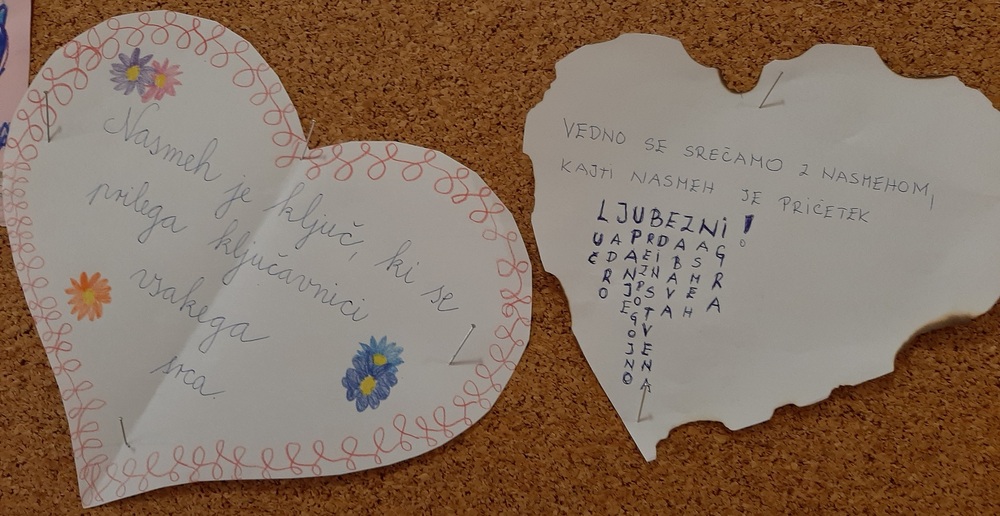 Nasmeh je ključ, ki se
prilega ključavnici
vsakega
srca.
VEDNO SE SREČAMO Z NASMEHOM,
KAJTI NASMEH JE PRIČETEK
LJUBEZNI!